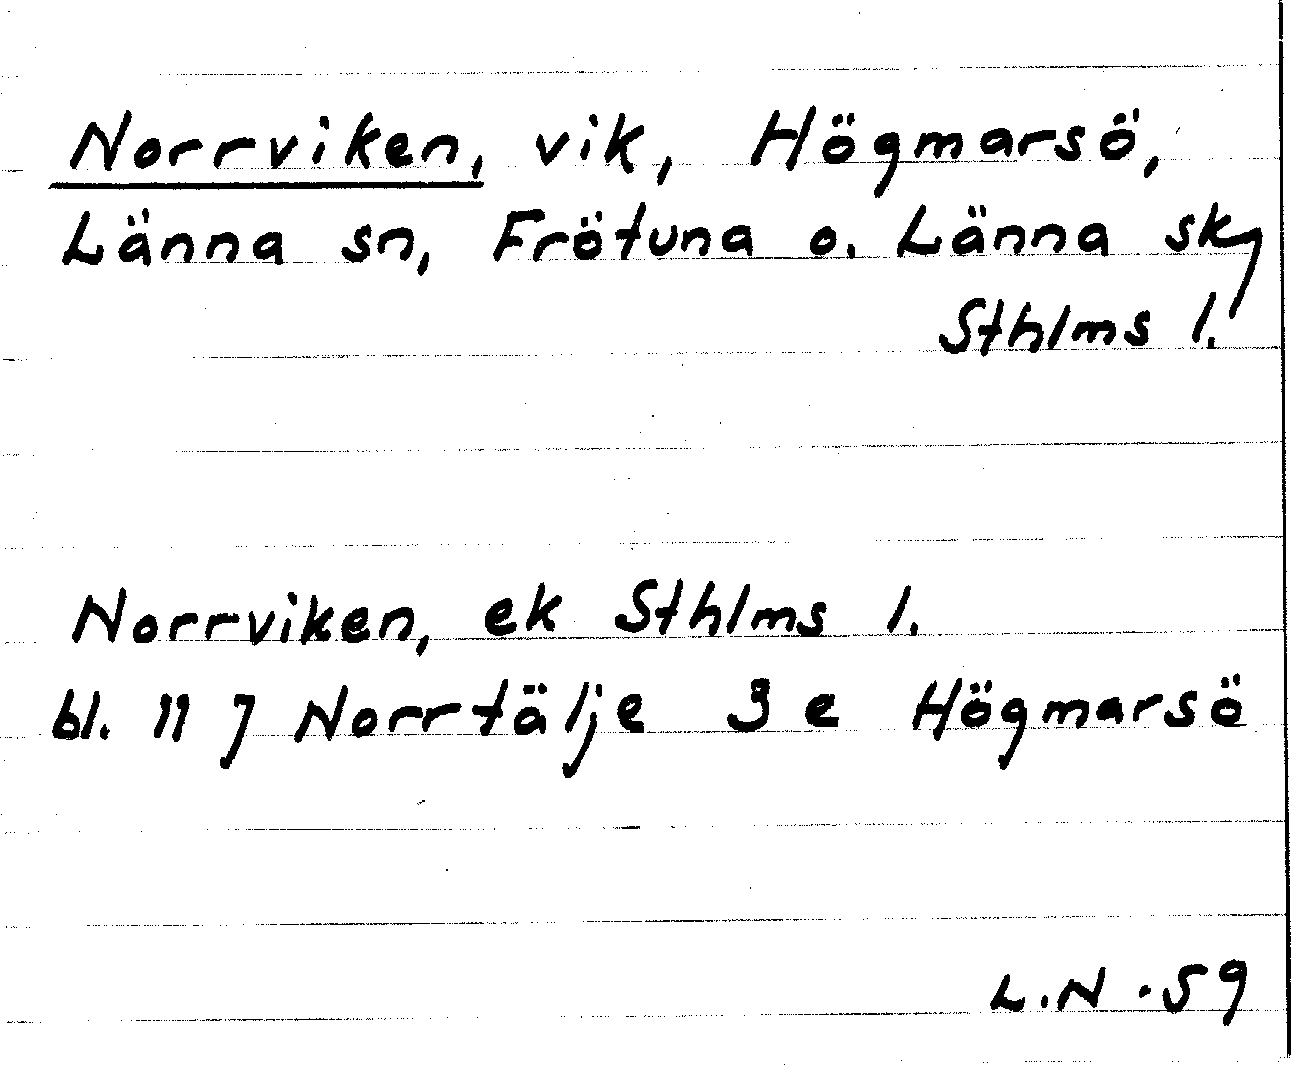 Norrviken, vik, Högmarsö,
Länna sn, Frötuna o. Länna skg
Sthlms l.
Norrviken, ek Sthlms l.
bl. 11 J Norrtälje 3 e Högmarsö
L.N. 59